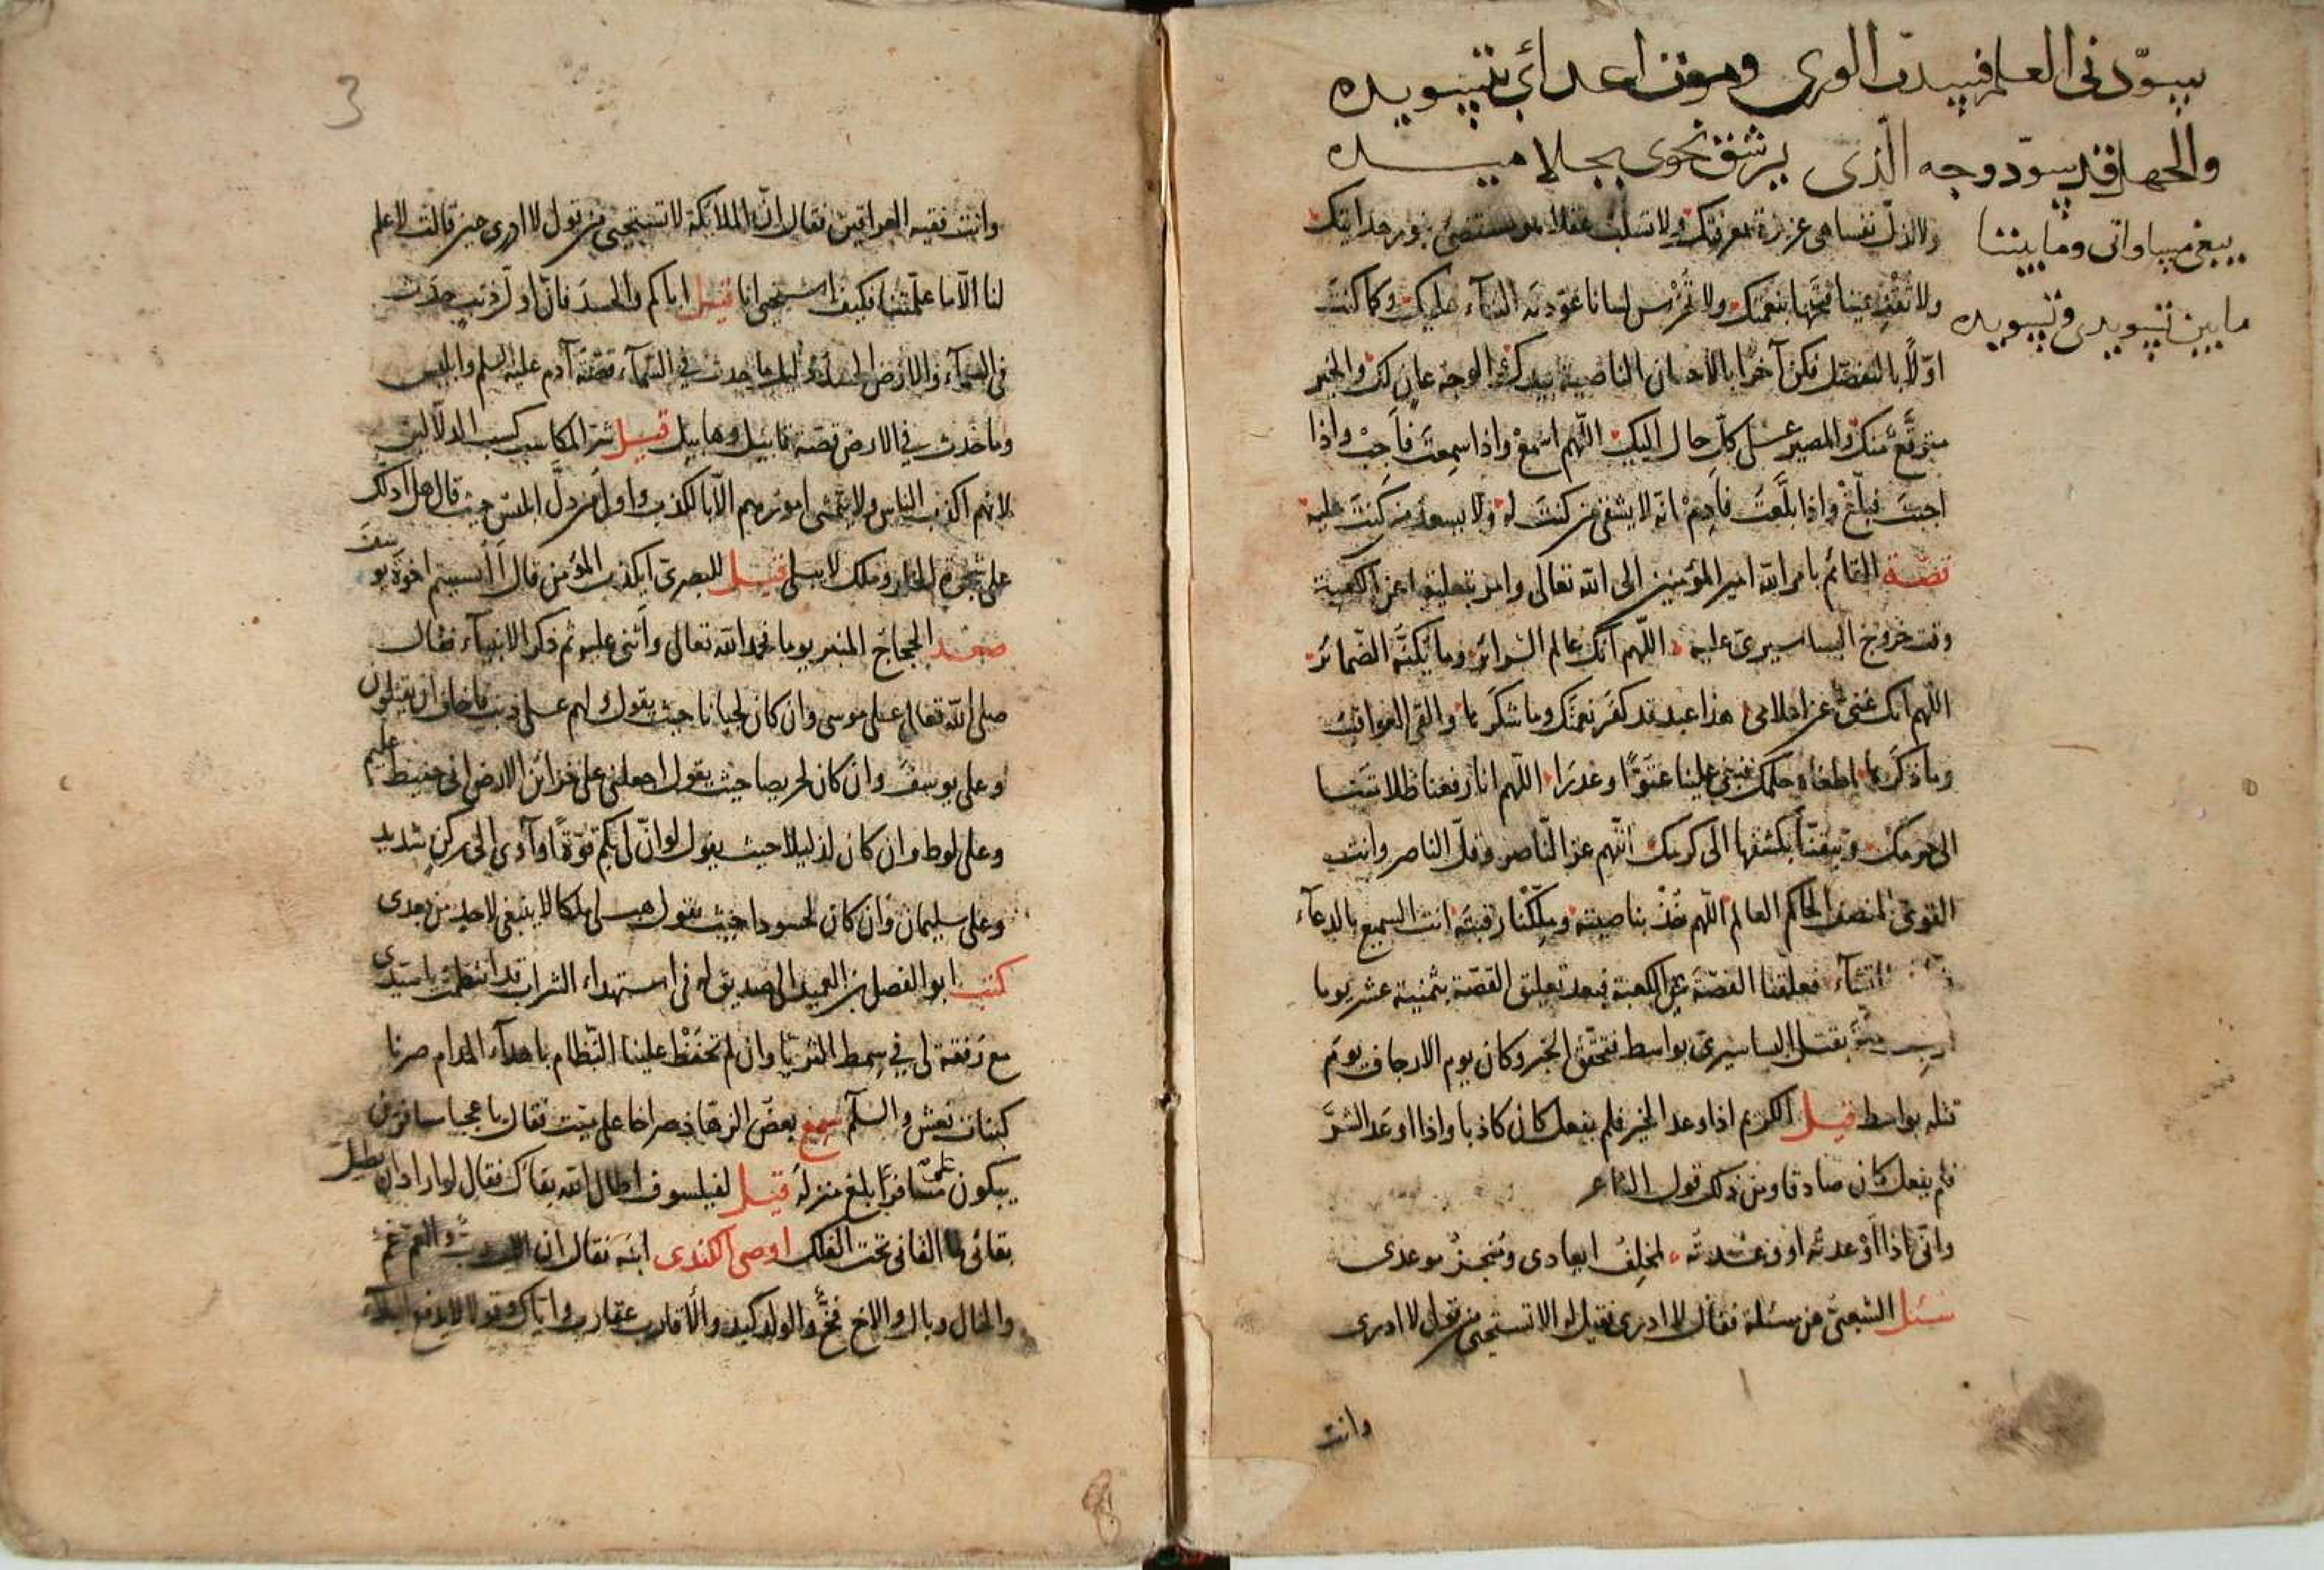 يسوّدني العلم فسدت الورى وموت اعدائي بتسويده
والجهل قد سوّد وجه الذى يرشف نحوى بجلاميده
يبغى مساواتى وما بيننا
ما بين تسويدى وتسويده
ولا تذلّ نفسا هى عزيزة بمعرفتك ولا تسلب عقلا هو مستضئ بنور هدايتك
ولا تقذ عينا فتحتها بنعمتك ولا تخرس لسانا عوّدته الثناء عليك وكما كنت
اوّلا بالتفضل فكن آخرا بالاحسان الناصية بيدك الوجه عان لك والخير
متوقّع منك والمصير على كلّ حال اليك اللهم اسمع واذا سمعت فاجب واذا
اجبت فبلّغ واذا بلّغت فأدم انه لا يشقى من كنت له ولا يسعد من كنت عليه
قصة القائم بامر الله امير المؤمنين الى الله تعالى وامر بتعليقها على الكعبة
وقت خروج البساسيرى عليه اللهم انك عالم السرائر وما تكنّه الضمائر
اللهم انك غنى عن اعلامى هذا عبد قد كفر نعمتك وما شكرها والقى العواقب
وما ذكرها اطغاه حلمك فبغى علينا عتوّا وغدرا اللهم انا رفعنا ظلامتنا
الى حرمك وثيقتنا بكشفها الى كرمك اللهم عز الناصر وقلّ الناصر وانت
القوى المنصف الحاكم العالم اللهم خذ بناصيته وملّكنا رقبته انت السميع بالدعاء
لما تشاء فعلقنا القصة على الكعبة فبعد تعليق القصة بثمنية عشر يوما
بقتل البساسيرى بواسط فتحقق الخبر وكان يوم الارجاف يوم
قتله بواسط قيل الكريم اذا وعد الخير فلم يفعل كان كاذبا واذا اوعد الشرّ
فلم يفعل كان صادقا ومن ذلك قول الشاعر
وانى اذا اوعدته او وعدته لمخلف ايعادى ومنجز موعدى
سئل الشعبى عن مسئلة فقال لا ادرى فقيل له الا تستحيى من قول لا ادرى
وانت
3
وانت فقيه العراقين فقال انّ الملائكة لا تستحيى من قول لا ادرى حين قالت لا علم
لنا الّا ما علّمتنا فكيف استحيى انا قيل اياكم والحسد فان اول ذنب حدث
فى السماء والارض الحسد اما ما حدث في السماء قصّة آدم عليه السلم وابليس
وما حدث في الارض قصة قابيل وهابيل قيل شر المكاسب كسب الدلالين
لانهم اكذب الناس ولا يتمشى امورهم الّا بالكذب واول من دلّ ابليس حيث قال هل ادلك
على شجرة الخلد وملك لا يبلى قيل للبصرى ايكذب المؤمن قال أأنسيتم اخوة يوسف
صعد الحجاج المنبر يوما فحمد الله تعالى واثنى عليه ثم ذكر الانبياء فقال
صلى الله تعالى على موسى وان كان لجبانا حيث يقول ولهم على ذنب فاخاف ان يقتلون
وعلى يوسف وان كان لحريصا حيث يقول اجعلنى على خزائن الارض انى حفيظ عليم
وعلى لوط وان كان لذليلا حيث يقول لو انّ لى بكم قوّة او آوى الى ركن شديد
وعلى سليمان وان كان لحسودا حيث يقول هب لى ملكا لا ينبغى لاحد من بعدى
كتب ابو الفضل بن العميد الى صديق له فى استهداء الشراب قد انتظمت يا سيدى
مع رفقة لى في سمط الثريّا وان لم تحفظ علينا النظام باهداء المدام صرنا
كبنات نعش والسلام سمع بعض الزهاد صراخا على ميت فقال يا عجبا مسافرين
يبكون على مسافر بلغ منزله قيل لفيلسوف اطال الله بقاك فقال لو اراد ان يطيل
بقائى ما القانى تحت الفلك اوصى الكندى ابنه فقال ان الاب ربّ والعم غم
والخال وبال والاخ فخّ والولد كيد والاقارب عقارب واياك وقول لا يدفع البلاء